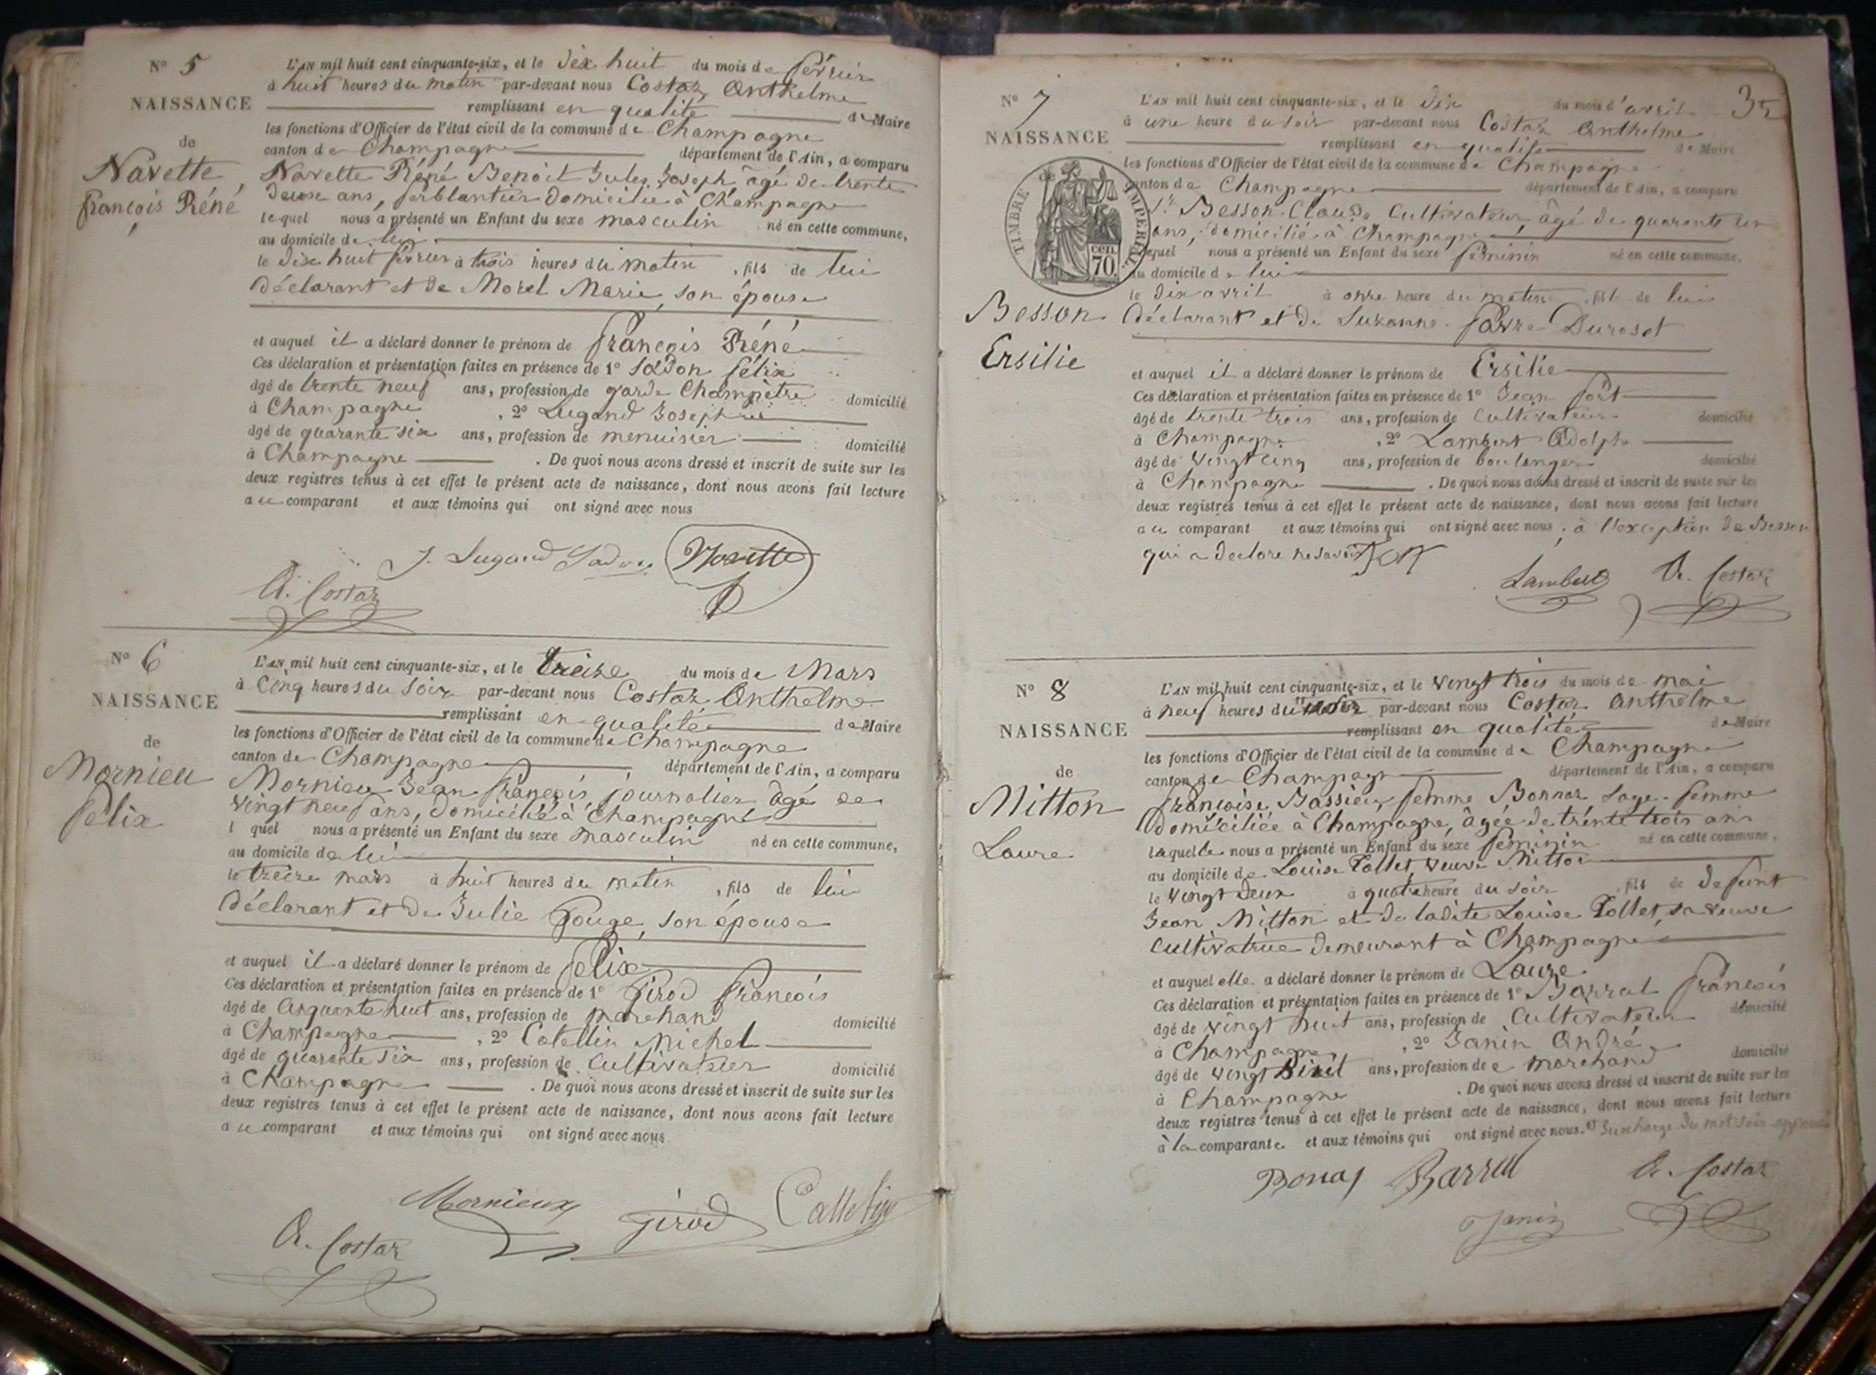 N° 5
NAISSANCE
de
Navette
François Réné
L'AN mil huit cent cinquante-six, et le dix huit du mois de février
à huit heures du matin par-devant nous Costaz Anthelme
remplissant en qualité de Maire
les fonctions d'Officier de l'état civil de la commune de Champagne
canton de Champagne département de l'Ain, a comparu
Navette Réné Benoit Jules Joseph âgé de trente
deux ans, ferblantier domicilié à Champagne
lequel nous a présenté un Enfant du sexe masculin né en cette commune,
au domicile de lui
le dix huit février à trois heures du matin, fils de lui
déclarant et de Morel Marie, son épouse
et auquel il a déclaré donner le prénom de François Réné
Ces déclaration et présentation faites en présence de 1° Félix
âgé de trente neuf ans, profession de garde Champêtre domicilié
à Champagne, 2° Lugand Joseph
âgé de quarante six ans, profession de menuisier domicilié
à Champagne. De quoi nous avons dressé et inscrit de suite sur les
deux registres tenus à cet effet le présent acte de naissance, dont nous avons fait lecture
au comparant et aux témoins qui ont signé avec nous
J. Lugand Navette
A. Costaz
N° 6
NAISSANCE
de
Mornieu
Félix
L'AN mil huit cent cinquante-six, et le treize du mois de Mars
à cinq heures du soir par-devant nous Costaz Anthelme
remplissant en qualité de Maire
les fonctions d'Officier de l'état civil de la commune de Champagne
canton de Champagne département de l'Ain, a comparu
Mornieu Jean François, journalier âgé de
vingt neuf ans, domicilié à Champagne
l quel nous a présenté un Enfant du sexe masculin né en cette commune,
au domicile de lui
le treize mars à huit heures du matin, fils de lui
déclarant et de Julie Gouge, son épouse
et auquel il a déclaré donner le prénom de Félix
Ces déclaration et présentation faites en présence de 1° Girod François
âgé de cinquante huit ans, profession de marchand domicilié
à Champagne, 2° Catellin Michel
âgé de quarante six ans, profession de cultivateur domicilié
à Champagne. De quoi nous avons dressé et inscrit de suite sur les
deux registres tenus à cet effet le présent acte de naissance, dont nous avons fait lecture
au comparant et aux témoins qui ont signé avec nous.
Mornieux Girod Cattelin
A. Costaz
35
N° 7
NAISSANCE
de
TIMBRE IMPERIAL
cen. 70
Besson
Ersilie
L'AN mil huit cent cinquante-six, et le dix du mois d'avril
à une heure du soir par-devant nous Costaz Anthelme
remplissant en qualité de Maire
les fonctions d'Officier de l'état civil de la commune de Champagne
canton de Champagne département de l'Ain, a comparu
Sr Besson Claude cultivateur, âgé de quarante un
ans, domicilié à Champagne
lequel nous a présenté un Enfant du sexe féminin né en cette commune,
au domicile de lui
le dix avril à onze heure du matin, fils de lui
déclarant et de Suzanne Favre Duroset
et auquel il a déclaré donner le prénom de Ersilie
Ces déclaration et présentation faites en présence de 1° Jean
âgé de trente trois ans, profession de cultivateur domicilié
à Champagne, 2° Lambert Adolphe
âgé de vingt cinq ans, profession de boulanger domicilié
à Champagne. De quoi nous avons dressé et inscrit de suite sur les
deux registres tenus à cet effet le présent acte de naissance, dont nous avons fait lecture
au comparant et aux témoins qui ont signé avec nous, à l'exception de Besson
qui a déclaré ne savoir
Lambert A. Costaz
N° 8
NAISSANCE
de
Mitton
Laure
L'AN mil huit cent cinquante-six, et le vingt trois du mois de mai
à neuf heures du par-devant nous Costaz Anthelme
remplissant en qualité de Maire
les fonctions d'Officier de l'état civil de la commune de Champagne
canton de Champagne département de l'Ain, a comparu
Françoise Bassieu femme Bonnaz sage-femme
domiciliée à Champagne, âgée de trente trois ans
laquelle nous a présenté un Enfant du sexe féminin né en cette commune,
au domicile de Louise Pollet, veuve Mitton
le vingt deux à quatre heure du soir, fils de défunt
Jean Mitton et de ladite Louise Pollet, sa veuve
cultivatrice demeurant à Champagne
et auquel elle a déclaré donner le prénom de Laure
Ces déclaration et présentation faites en présence de 1° Barral François
âgé de vingt huit ans, profession de cultivateur domicilié
à Champagne, 2° Janin André
âgé de vingt ans, profession de marchand domicilié
à Champagne. De quoi nous avons dressé et inscrit de suite sur les
deux registres tenus à cet effet le présent acte de naissance, dont nous avons fait lecture
à la comparante et aux témoins qui ont signé avec nous. Surcharge du mot soir approuvée
Bonaz Barral A. Costaz
Janin